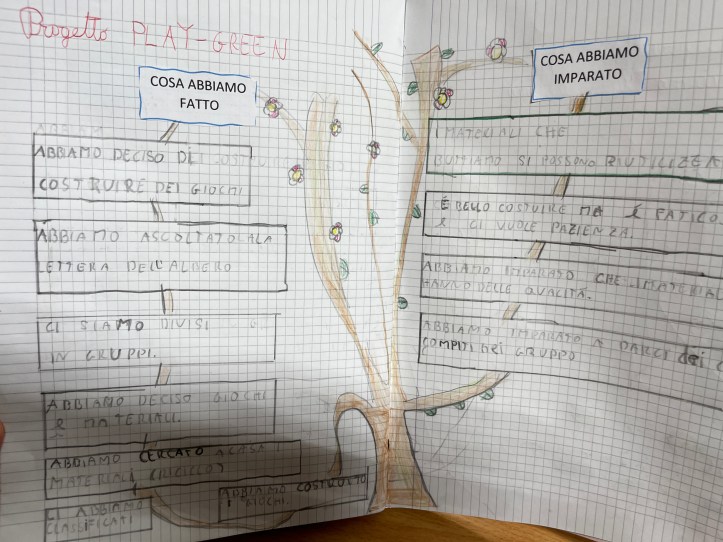 Progetto PLAY-GREEN
COSA ABBIAMO
FATTO
ABBIAMO DECISO DI
COSTRUIRE DEI GIOCHI
ABBIAMO ASCOLTATO LALA
LETTERA DELL'ALBERO
CI SIAMO DIVISI
IN GRUPPI.
ABBIAMO DECISO GIOCHI
E MATERIALI.
ABBIAMO CERCATO A CASA I
MATERIALI (RICICLO)
CI ABBIAMO
CLASSIFICATI
ABBIAMO COSTRUITO
I GIOCHI
COSA ABBIAMO
IMPARATO
I MATERIALI CHE
SI POSSONO RIUTILIZZER
È BELLO COSTRUIRE MA È FATICO
E CI VUOLE PAZIENZA.
ABBIAMO IMPARATO CHE I MATERIA
HANNO DELLE QUALITÀ.
ABBIAMO IMPARATO A DARCI dei C
COMPITI NEI GRUPPO